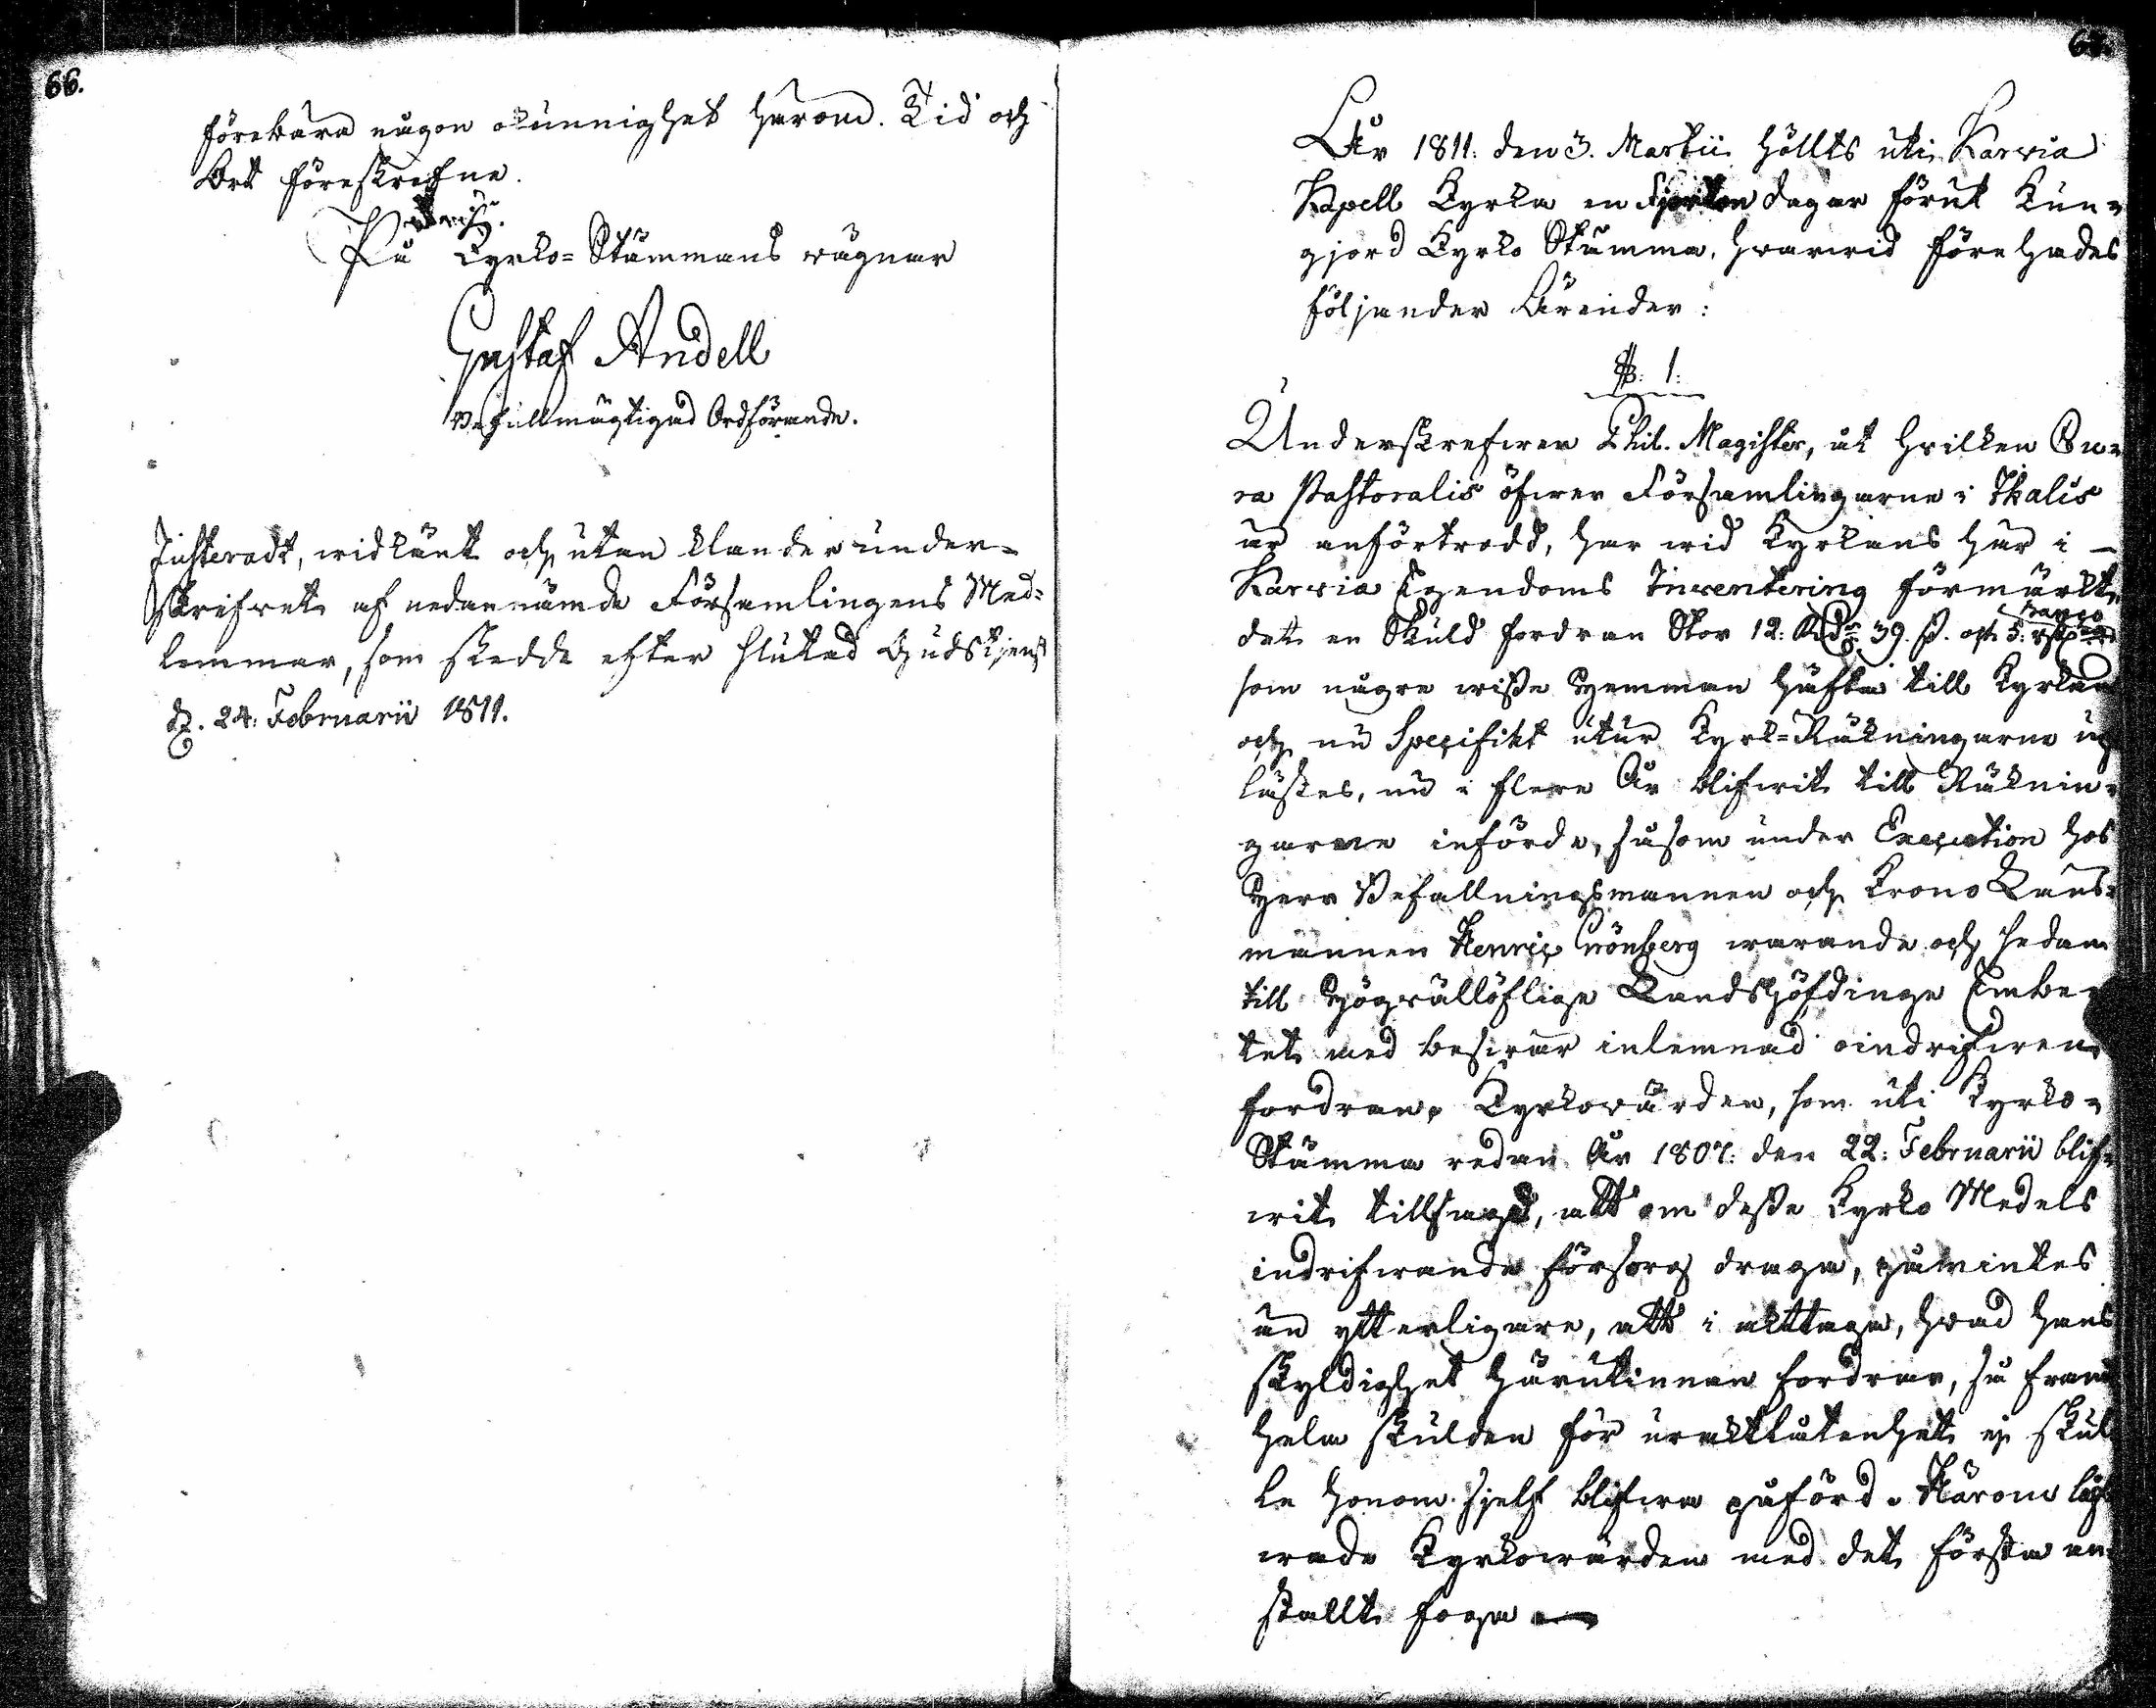 66.
förebära någon okunnighet härom. Tid och
Ort föreskrefne.
På Kyrko=Stämmans wägnar
Gustaf Andell
Befullmägtigad Ordförande.
Justeradt, widkänt och utan klander under=
skrifwet af nedannämde Församlingens Med=
lemmar, som skedde efter slutad Gudstjenst
d. 24: Februarii 1811.
År 1811. den 3. Martii höllts uti Karvia
Kapell Kyrka en Fjorton dagar förut kun=
gjord Kyrko Stämma, hwarwid förehades
följander Ärender:
§: 1:
Underskrefwen Phil. Magister, åt hwilken Cu=
ra Pastoralis öfwer Församlingarne i Ikalis
är anförtrodd, har wid Kyrkans här i
Karvia Egendoms Inventering förmärkt,
det en Skuld fordran Stor 12: Rd 39. ß. och 5: Banco
som någre wisse Hemman häfta till Kyrkan
och nu Specifikt utur Kyrk=Räkningarne up
lästes, nu i flere År blifwit till Räknin=
garne införde, såsom under Execution hos
Herr Befallningsmannen och Krono Läns=
mannen Henric Grönberg warande och sedan
till Högwällöflige Landshöfdinge Embe=
tet med beswär inlemnad oindrifwen
fordran. Kyrkowärden, som uti Kyrko=
Stämma redan År 1807: den 22: Februarii blif=
wit tillsagd, att om desse Kyrko Medels
indrifwande försorg draga, påmintes
än ytterligare, att i akttaga, hwad hans
skyldighet härutinnan fordrar, så framt
hela skulden för uraktlåtenhet ej skul
le honom sjelf blifwa påförd. Härom låf
wade Kyrkowärden med det första an=
stallt foga